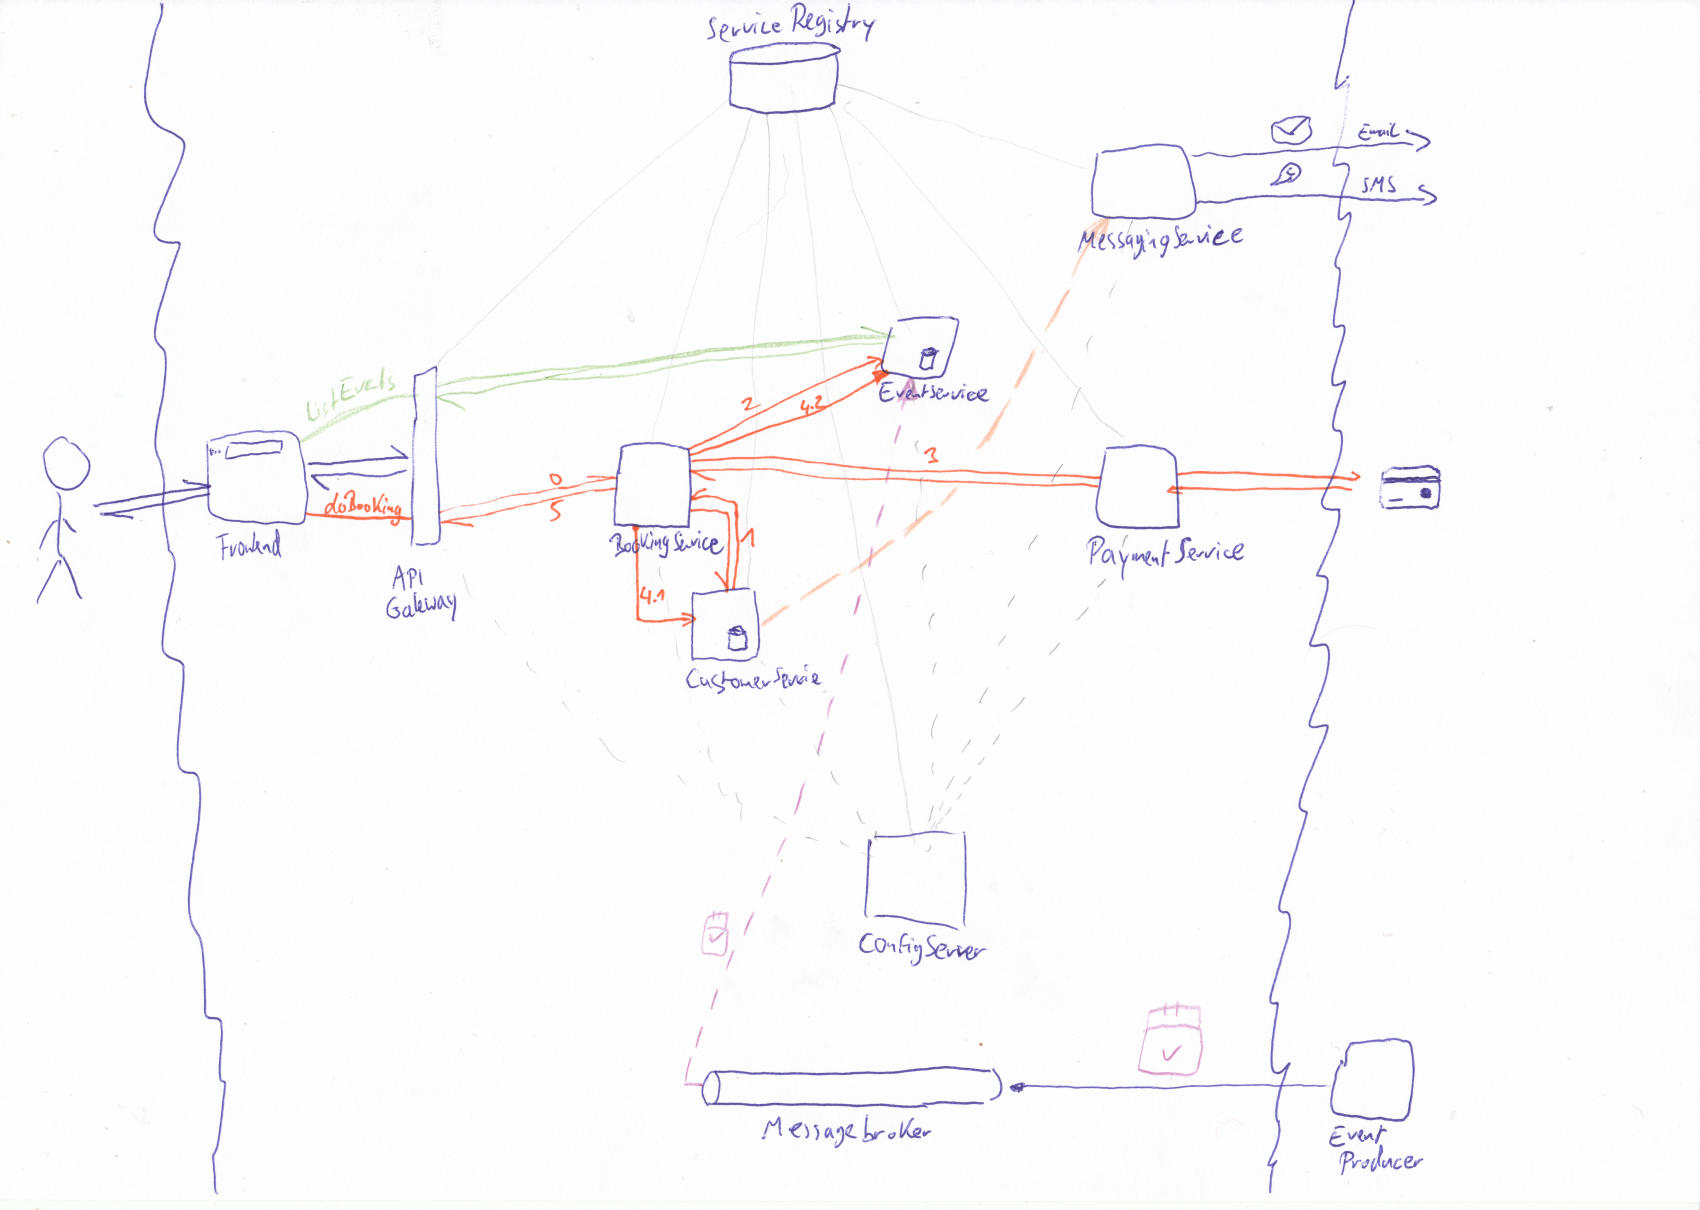 Service Registry
Email
SMS
MessagingService
ListEvents
Eventservice
2
4.2
3
0
doBooking
5
Frontend
BookingService
1
PaymentService
API
Gateway
4.1
CustomerService
ConfigServer
Messagebroker
Event
Producer